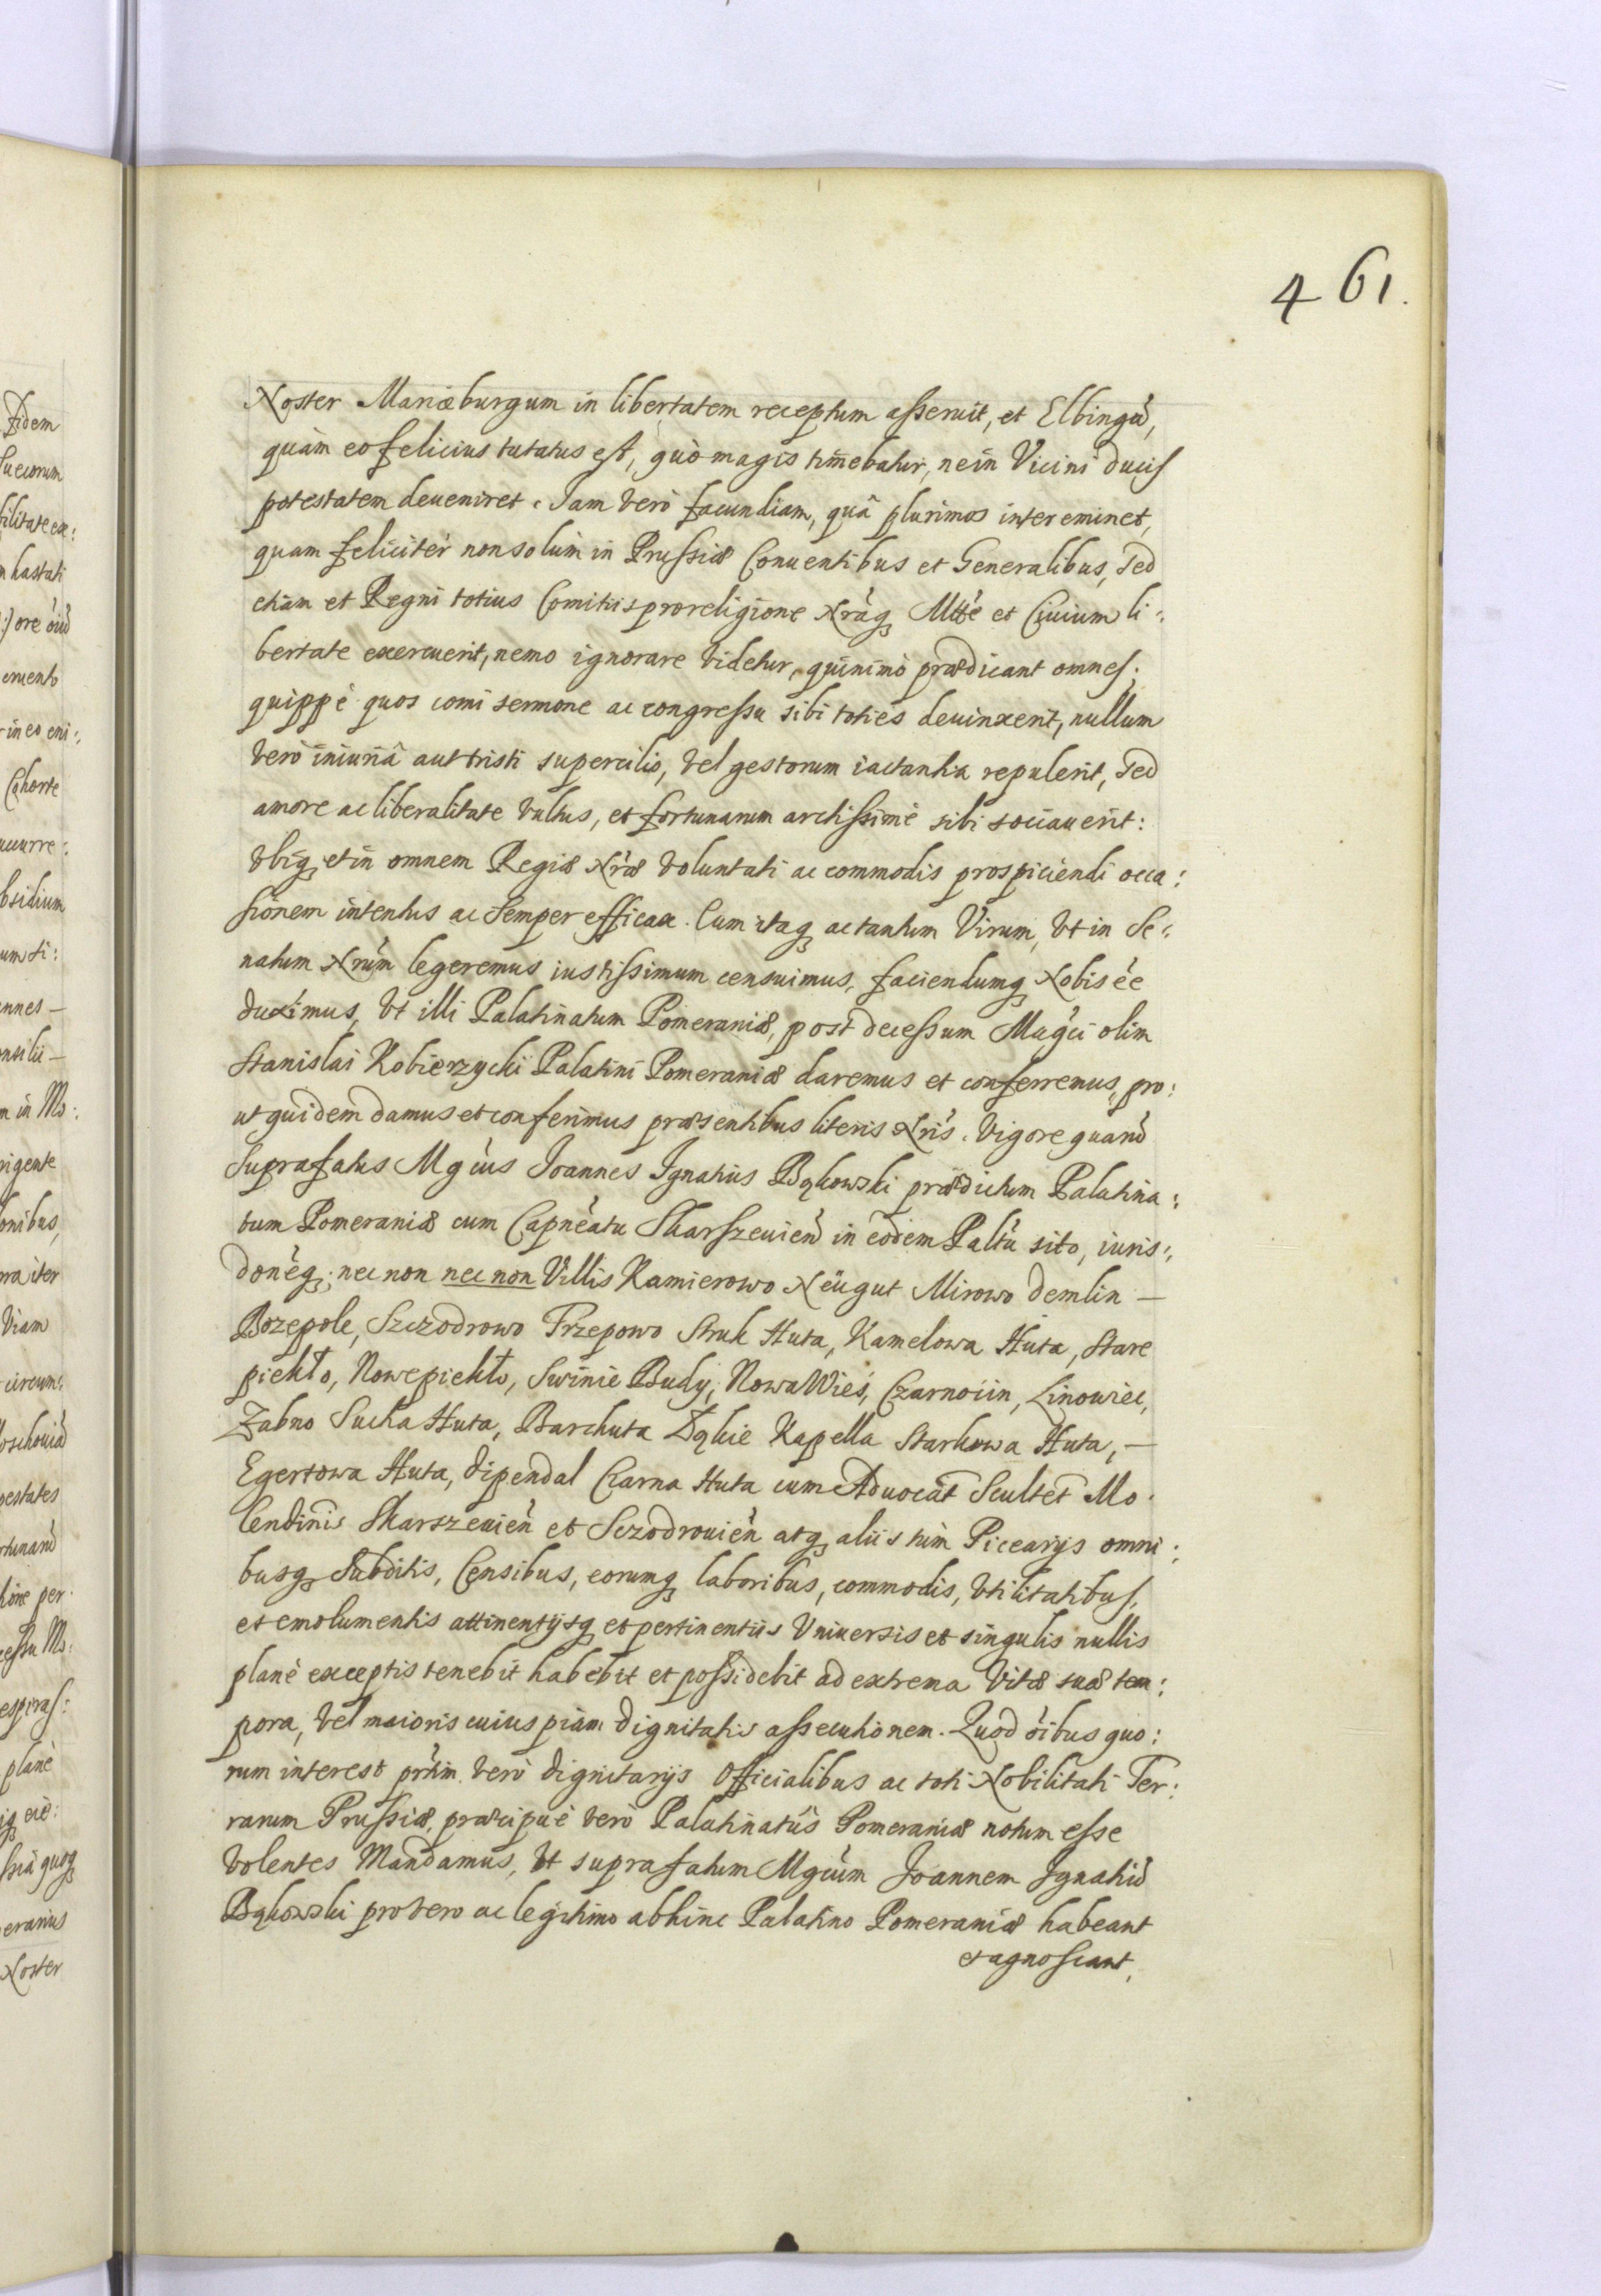 461.
Noster Mariæburgum in libertatem receptum asseruit, et Elbingũ,
quàm eo felicius tutatus est, quò magis timebatur, ne in Vicini ducis
potestatem deueniret. Iam verò facundiam, quâ plurimos inter eminet,
quam felicitèr non solùm in Prussiæ Conuentibus et Generalibus, sed
etiam et Regni totius Comitiis pro religione Nrãq Mtte et Ciuium li:
bertate exercuerit, nemo ignorare videtur, quinimò prædicant omnes;
quippè quos comi sermone ac congressu sibi toties deuinxerit, nullum
verò iniuriâ aut tristi supercilio, vel gestorum iactantia repulerit, sed
amore ac liberalitate vultus, et fortunarum arctissimè sibi sociauerit:
vbiq et in omnem Regiæ Nræ voluntati ac commodis prospiciendi occa:
sionem intentus ac semper efficax. Cum itaq ac tantum Virum, vt in Se:
natum Nrũm legeremus iustissimum censuimus, faciendumq Nobis ẽe
duximus, vt illi Palatinatum Pomeraniæ, post decessum Magci olim
Stanislai Kobierzycki Palatini Pomeraniæ daremus et conferremus, pro:
ut quidem damus et conferimus præsentibus literis Nris. Vigore quarũ
Suprafatus Mgcus Ioannes Ignatius Bąkowski prædictum Palatina:
tum Pomeraniæ cum Capneatu Skarszeuien in eodem Paltu sito, iuris:
doneq; nec non nec non Villis Kamierowo Neugut Mirowo Demlin —
Bozepole, Szczodrowo Trzepowo Struk Huta, Kamelowa Huta, Stare
piekło, Nowepiekło, Swinie Budy, Nowa Wieś, Czarnociin, Linowiec,
Zabno Sucha Huta, Barchuta Dąbie Kapella Starkowa Huta, —
Egertowa Huta, Dipendal Czarna Huta cum Aduocat Scultet Mo:
lendinis Skarszeuien et Sczodrouien atq aliis tùm Picearijs omni:
busq subditis, Censibus, eorumq laboribus, commodis, vtilitatibus,
et emolumentis attinentijsq et pertinentiis Vniuersis et singulis nullis
planè exceptis tenebit habebit et possidebit ad extrema vitæ suæ tem:
pora, vel maioris cuiuspiam dignitatis assecutionem. Quod õibus quo:
rum interest prtim verò dignitarijs Officialibus ac toti Nobilitati Ter:
rarum Prussiæ, præcipuè verò Palatinatûs Pomeraniæ notum esse
volentes Mandamus, vt suprafatum Mgcum Joannem Ignatiũ
Bąkowski pro vero ac legitimo abhinc Palatino Pomeraniæ habeant
et agnoscant,